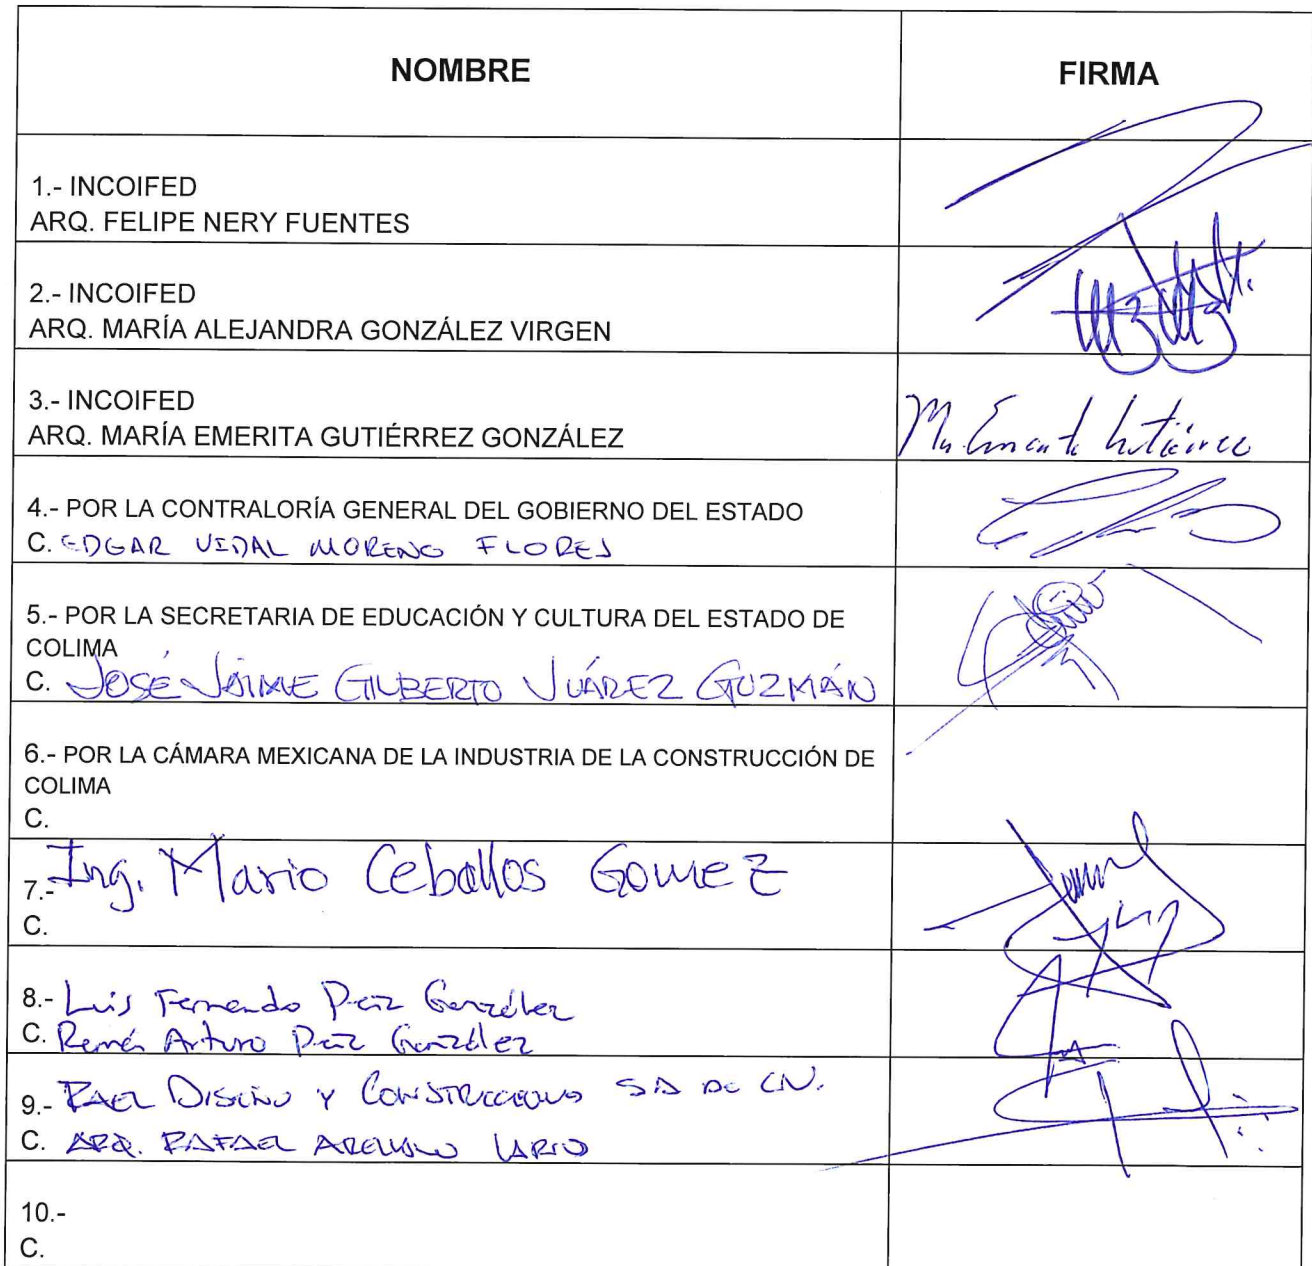 NOMBRE
FIRMA
1.- INCOIFED
ARQ. FELIPE NERY FUENTES
2.- INCOIFED
ARQ. MARÍA ALEJANDRA GONZÁLEZ VIRGEN
3.- INCOIFED
ARQ. MARÍA EMERITA GUTIÉRREZ GONZÁLEZ
4.- POR LA CONTRALORÍA GENERAL DEL GOBIERNO DEL ESTADO
C. EDGAR VIDAL MORENO FLORES
5.- POR LA SECRETARIA DE EDUCACIÓN Y CULTURA DEL ESTADO DE
COLIMA
C. JOSÉ JAIME GILBERTO JUÁREZ GUZMÁN
6.- POR LA CÁMARA MEXICANA DE LA INDUSTRIA DE LA CONSTRUCCIÓN DE
COLIMA
C.
7.- Ing. Mario Ceballos Gomez
C.
8.- Luis Fernando González
C. Arturo González
9.- RAEL DISEÑO Y CONSTRUCCIONES SA DE CV.
C. ARQ. RAFAEL
10.-
C.